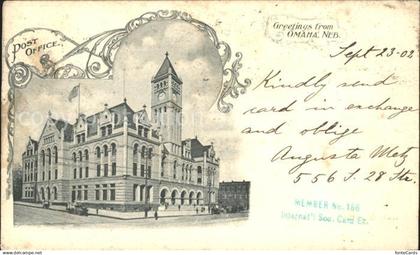 POST OFFICE.
Greetings from
OMAHA, NEB.
Sept 23-02
Kindly send
card in exchange
and oblige
Augusta Metz
556 S. 28 Str.
MEMBER No. 166
Internat'l Sou. Card Ex.
© fontsCards.com